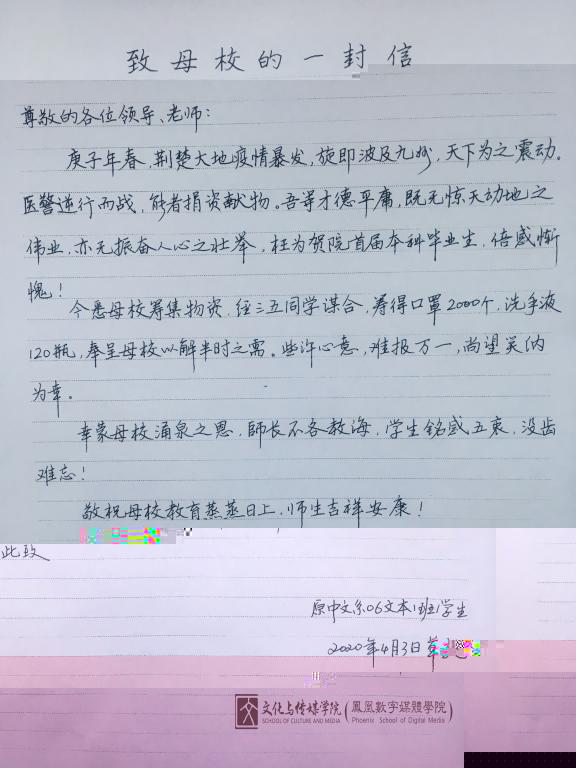 致母校的一封信
尊敬的各位领导、老师：
庚子年春，荆楚大地疫情暴发，旋即波及九州，天下为之震动。
医警逆行而战，能者捐资献物。吾等才德平庸，既无惊天动地之
伟业，亦无振奋人心之壮举，枉为贺院首届本科毕业生，倍感惭
愧！
今悉母校筹集物资，经三五同学谋合，筹得口罩2000个，洗手液
120瓶，奉呈母校以解半时之需。些许心意，难报万一，尚望笑纳
为幸。
幸蒙母校涌泉之恩，師长不各教海，学生铭感五衷，没齿
难忘！
敬祝母校教育蒸蒸日上，师生吉祥安康！
此致
原中文系06文本1班学生
2020年4月3日
文化与传媒学院
SCHOOL OF CULTURE AND MEDIA
鳳凰數字媒體學院
Phoenix School of Digital Media